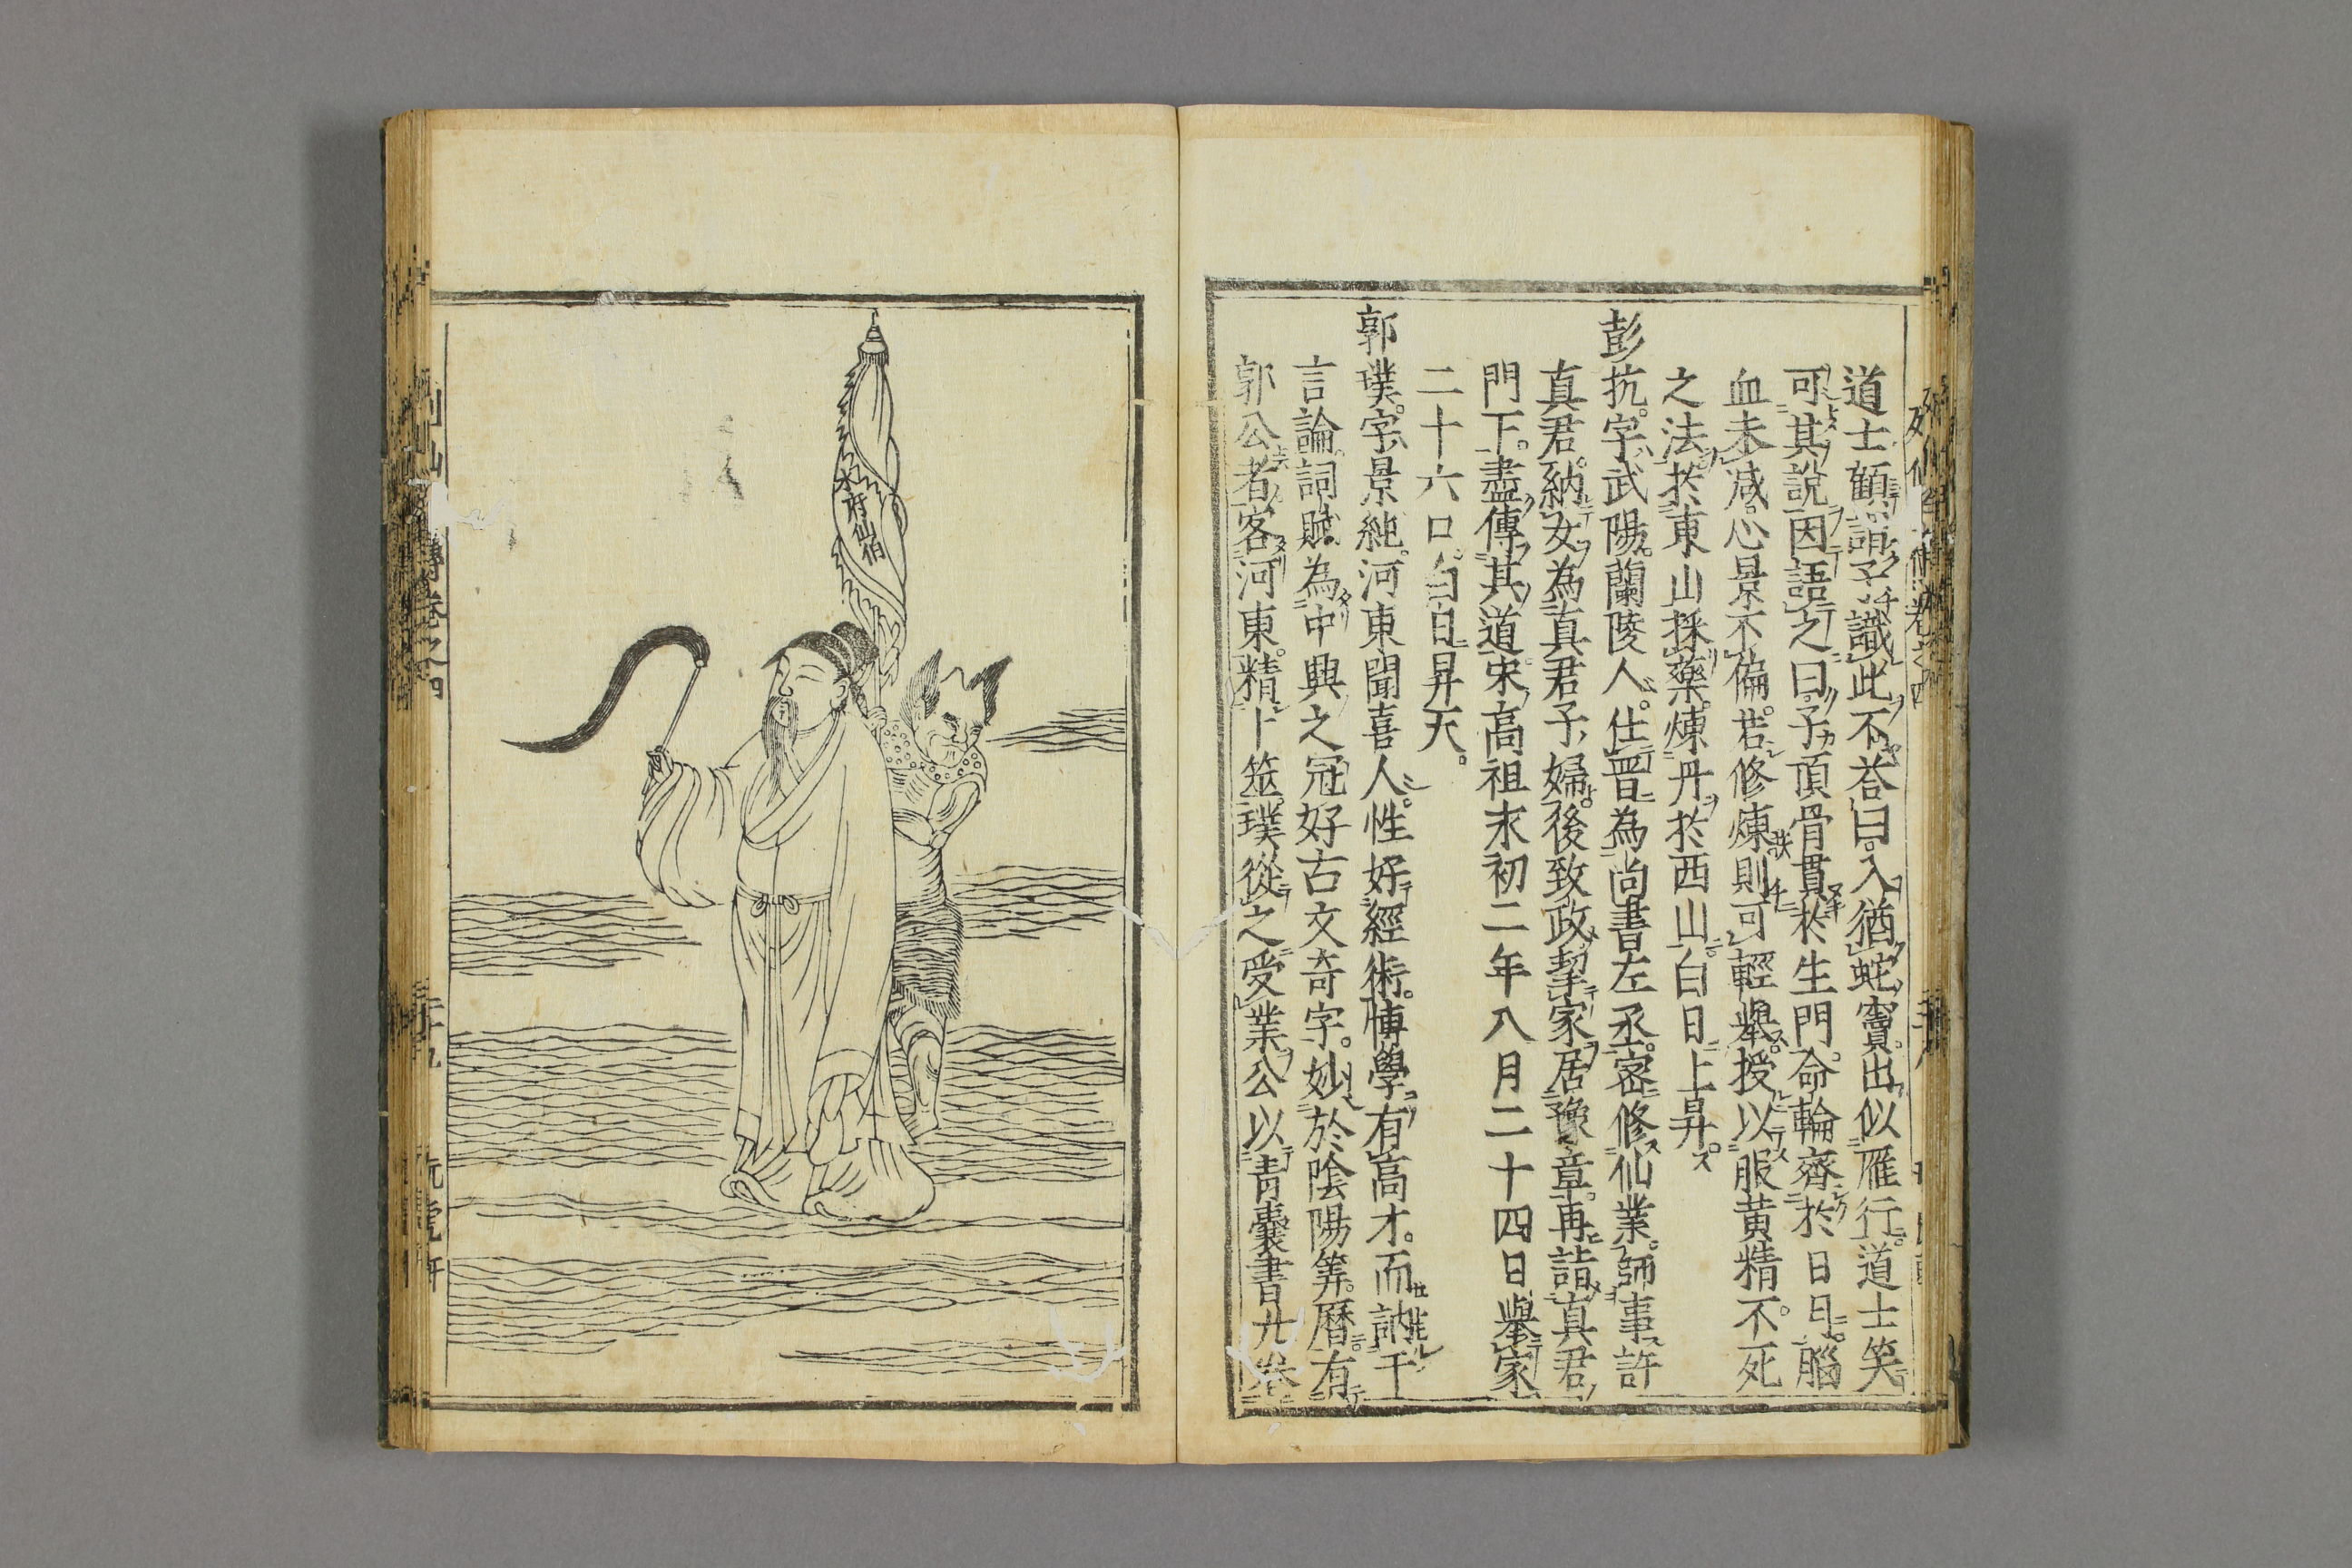 道士顧謂子識此不荅曰入猶蛇竇出似雁行道士笑
可其說因語之曰子頂骨貫於生門命輪齊於日月腦
血未减心景不偏若修煉則可輕舉授以服黄精不死
之法於東山採藥煉丹於西山白日上昇
彭抗字武陽蘭陵人仕晋為尚書左丞密修仙業師事許
真君納女為真君子婦後致政挈家居豫章再詣真君
門下盡傳其道宋高祖永初二年八月二十四日舉家
二十六口白日昇天
郭璞字景純河東聞喜人性好經術博學有高才而訥于
言論詞賦為中興之冠好古文奇字妙於陰陽筭曆有
郭公者客河東精卜筮璞從之受業公以青囊書九卷
水府仙伯
傳卷之四